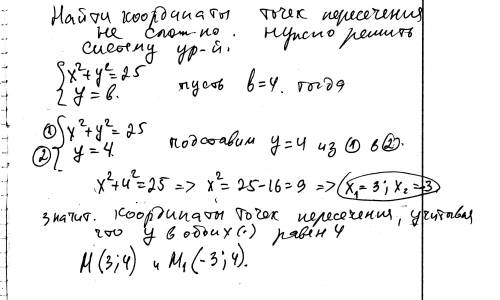 Найти координаты точек пересечения
не сложно. нужно решить
систему ур-й.
{x²+y²=25
{y=b.
пусть b=4. тогда
① {x²+y²=25
② {y=4.
подставим y=4 из ① в ②.
x²+4²=25 => x²=25-16=9 => x₁=3; x₂=-3
значит. координаты точек пересечения, учитывая
что y в обоих (·) равен 4
M(3;4) и M₁(-3;4).